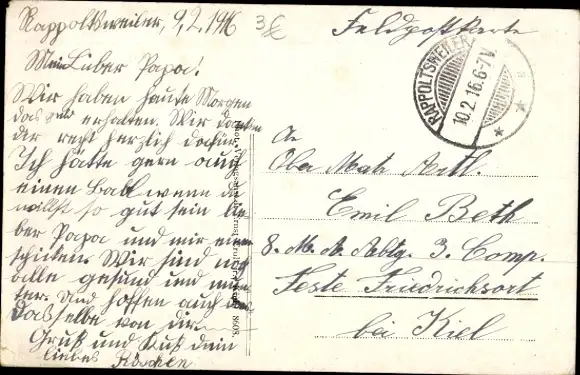 Rappoltsweiler, 9.2.1916
3€
Feldpostkarte
Mein Lieber Papa!
Wir haben heute Morgen
das geld erhalten. Wir danken
dir recht herzlich dafür.
Ich hätte gern auch
einen Ball wenn du
willst so gut sein lie
ber Papa und mir einen
schicken. Wir sind noch
alle gesund und mun
ter. Und hoffen auch
dasselbe von dir.
Gruß und Kuß dein
liebes Röschen
RAPPOLTSWEILER
10.2.16.6-7V.
An
Ober Matr. Artl.
Emil Beth
8. M. A. Abtg. 3. Comp.
Feste Friedrichsort
bei Kiel